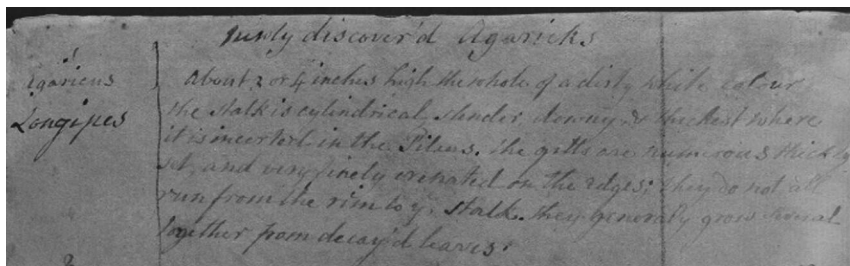 newly discover'd Agaricks
1
igaricus
Longipes
About 3 or 4 inches high the whole of a dirty white colour
the stalk is cylindrical, slender, downy & thickest where
it is incerted in the Pileus. The gills are numerous thickly
set, and very finely crenated on the edges; they do not all
run from the rim to ye. stalk. They generally grow several
together from decay'd leaves.
2